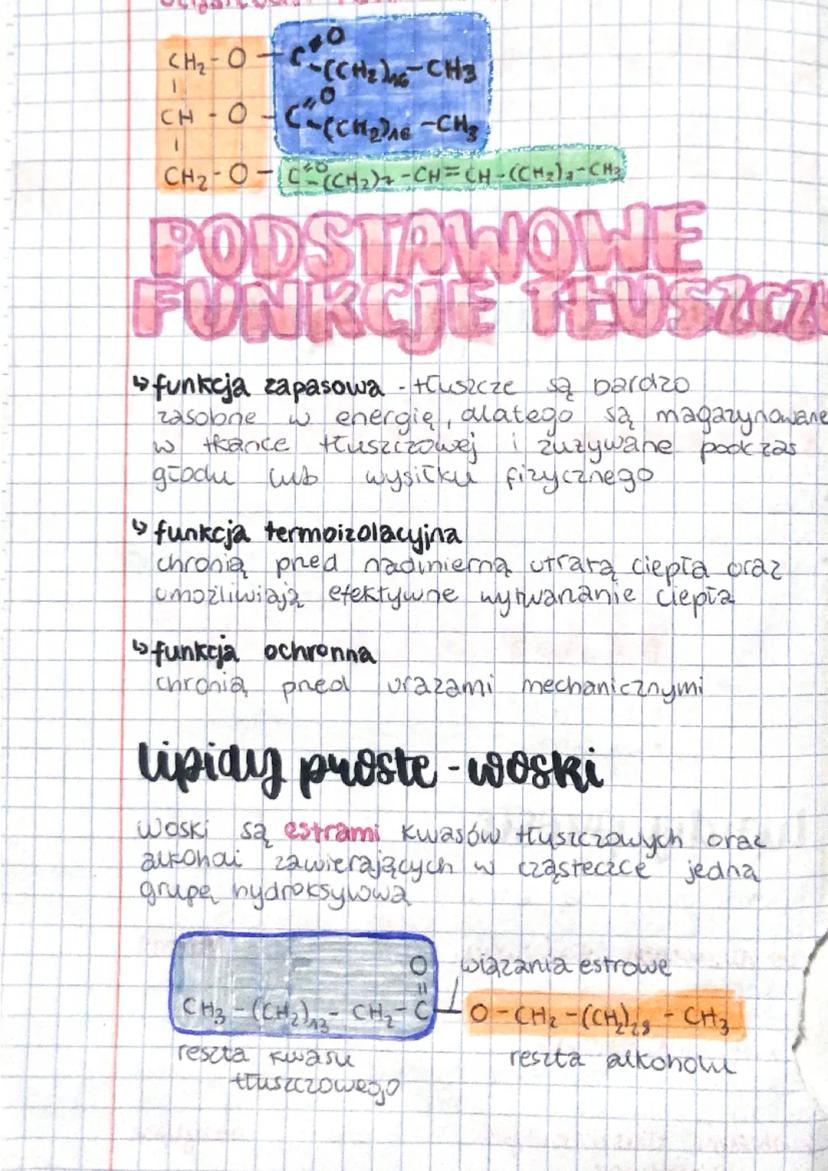 CH₂-O-C=O-(CH₂)₁₆-CH₃
CH-O-C=O-(CH₂)₁₆-CH₃
CH₂-O-C=O-(CH₂)₇-CH=CH-(CH₂)₇-CH₃
PODSTAWOWE
FUNKCJE TŁUSZCZY
↳ funkcja zapasowa - tłuszcze są bardzo
zasobne w energię, dlatego są magazynowane
w tkance tłuszczowej i zużywane podczas
głodu lub wysiłku fizycznego
↳ funkcja termoizolacyjna
chronią przed nadmierną utratą ciepła oraz
umożliwiają efektywne wytwarzanie ciepła
↳ funkcja ochronna
chronią przed urazami mechanicznymi
lipidy proste - woski
woski są estrami kwasów tłuszczowych oraz
alkoholi zawierających w cząsteczce jedną
grupę hydroksylową
O
wiązania estrowe
CH₃-(CH₂)₁₃-CH₂-C-O-CH₂-(CH₂)₂₈-CH₃
reszta kwasu
tłuszczowego
reszta alkoholu